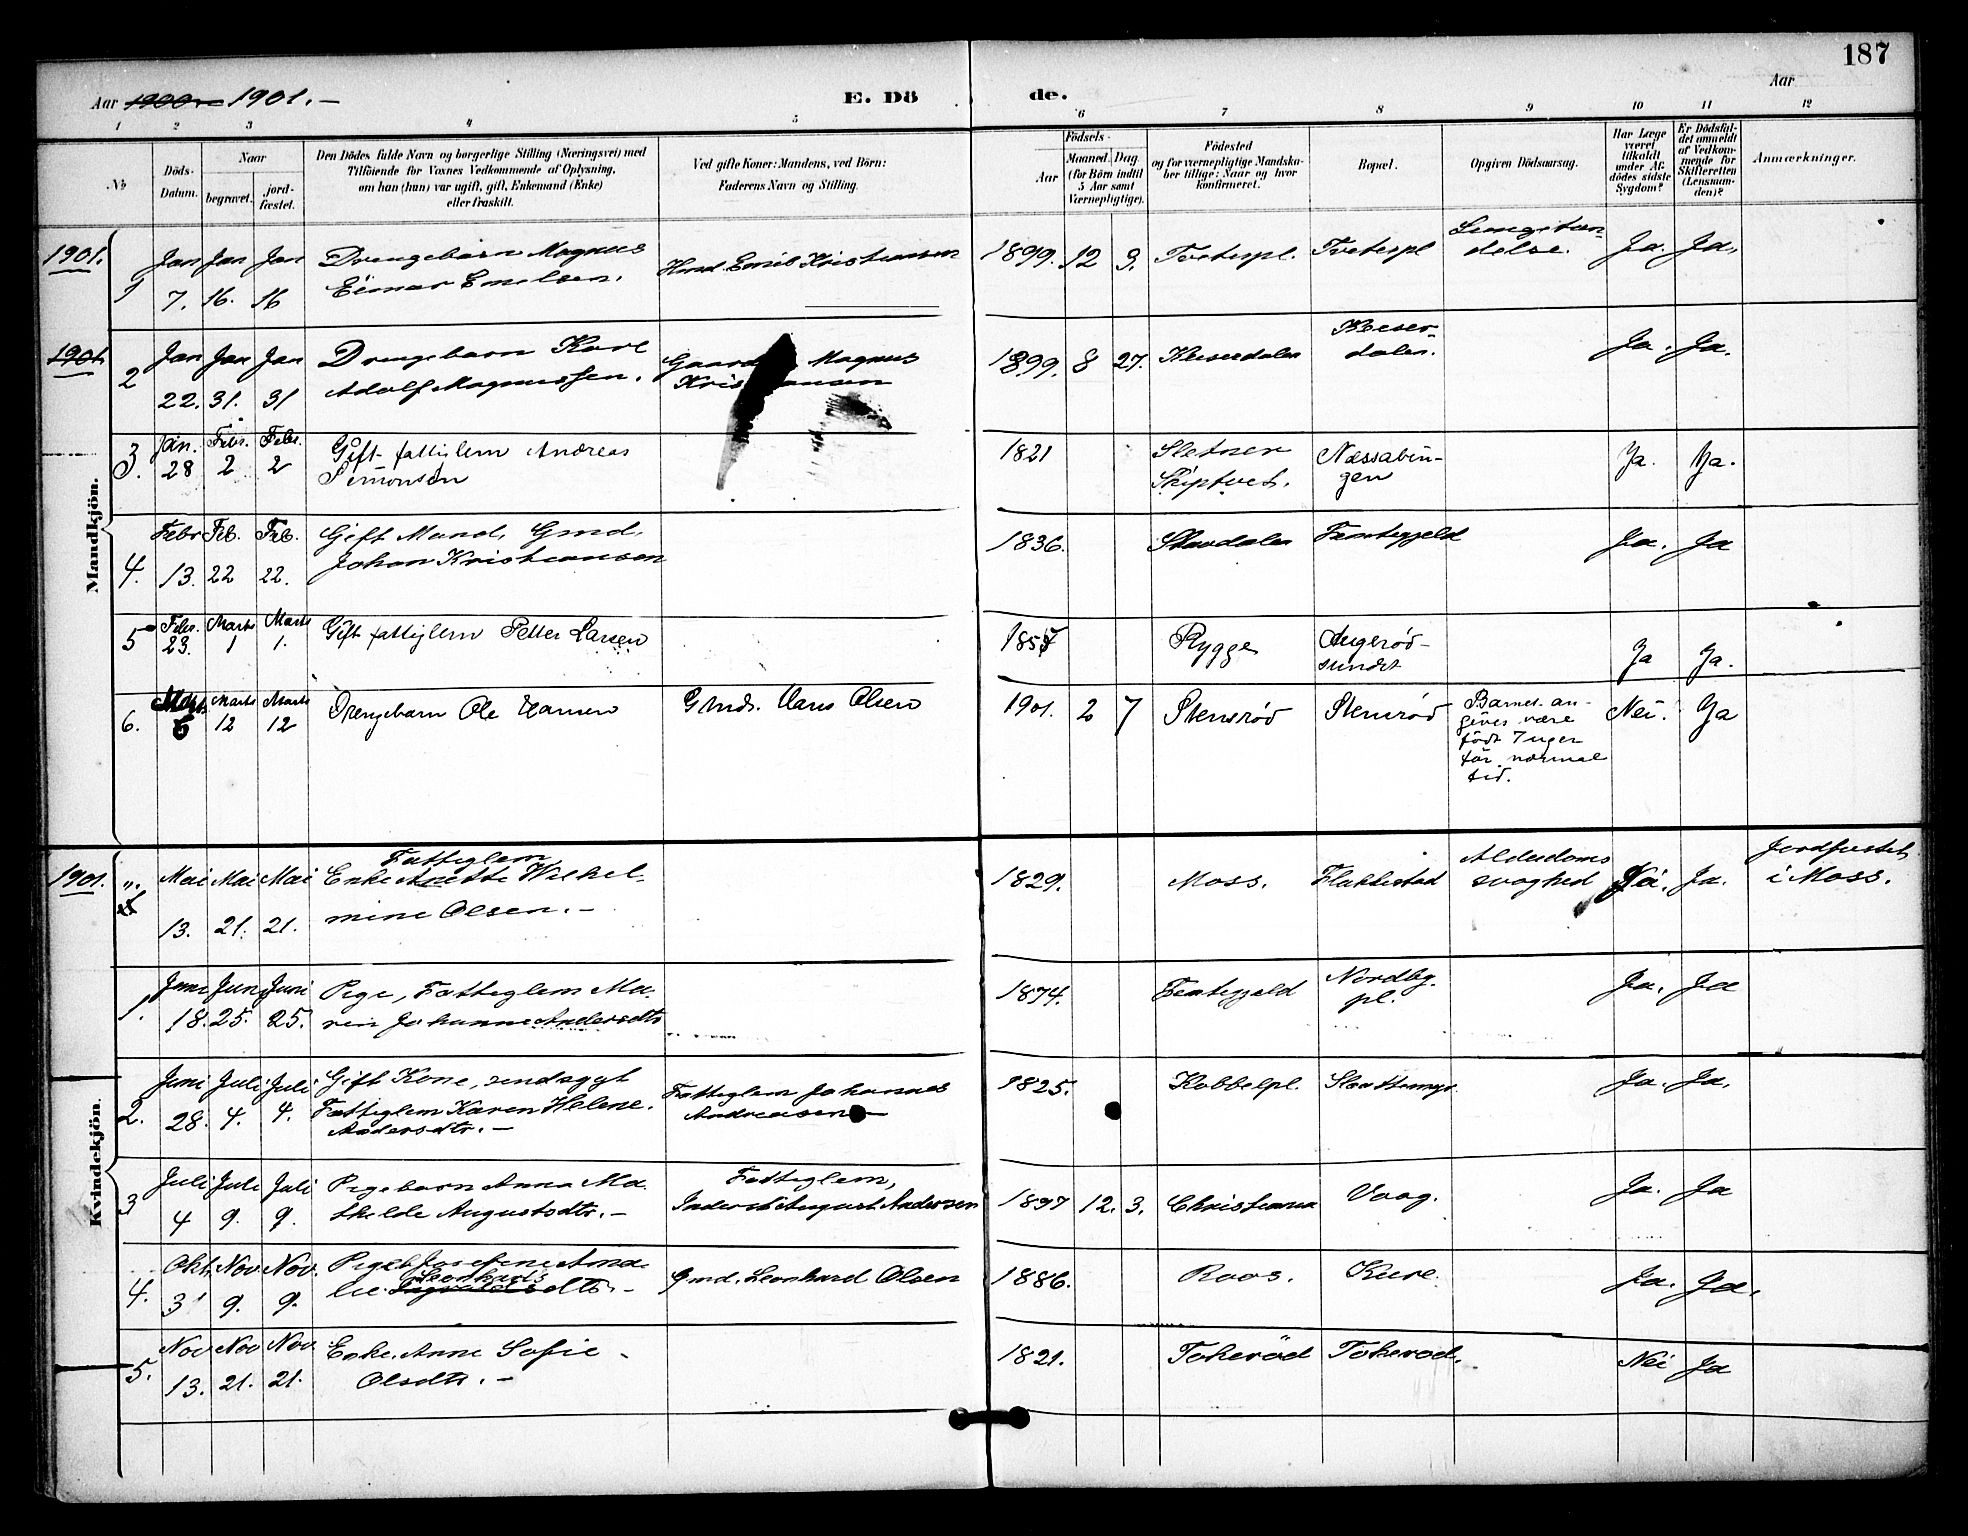 187
Aar 1900 1901. –
E. Dö
de.
Aar
1 2 3 4 5 6 7 8 9 10 11 12
No
Döds-Datum.
Naar
begravet. jord-fæstet.
Den Dödes fulde Navn og borgerlige Stilling (Næringsvei) med
Tilföiende for Voxnes Vedkommende af Oplysning,
om han (hun) var ugift, gift, Enkemand (Enke)
eller fraskilt.
Ved gifte Koner: Mandens, ved Börn:
Faderens Navn og Stilling.
Födsels-
Aar
Maaned. Dag.
(for Börn indtil
5 Aar samt
Værnepligtige).
Födested
og for værnepligtige Mandska-
ber tillige: Naar og hvor
konfirmeret.
Bopæl.
Opgiven Dödsaarsag.
Har Læge
været
tilkaldt
under Af-
dödes sidste
Sygdom?
Er Dödsfal-
det anmeldt
af Vedkom-
mende for
Skifteretten
(Lensman-
den)?
Anmærkninger.
Mandkjön.
1901.
1 Jan 7. Jan 16. Jan 16 Drengebarn Magnus
Einar Emilsen. Hmd. Emil Kristiansen 1899. 12 9. Tvetespl. Tvetespl Lungebæn-
delse. Ja. Ja.
1901.
2 Jan 22. Jan 31. Jan 31 Drengebarn Karl
Adolf Magnussen. Magnus
1899. 8 27. Keiserdalen Keiser-
dalen. Ja. Ja.
3. Jan. 28 Febr. 2 Febr. 2 Gift fattiglem Andreas
Simonsen 1821 Sletner
Skiptvet. Næssabin-
gen Ja. Ja.
4. Febr 13. Feb. 22 Feb. 22. Gift Mand, Gmd.
Johan Kristiansen 1836. Skovdalen Ja. Ja
5 Febr. 23. Marts 1 Marts 1. Gift fattiglem Petter Larsen Rygge
sundet Ja Ja.
6. Marts Marts 12 Marts 12 Drengebarn Ole Hansen Gmd. Hans Olsen 1901. 2 7 Stensrød Stensrød Barnet an-
gives være
født 7 uger
før normal
tid. Nei. Ja
Kvindekjön.
1901.
Mai 13. Mai 21. Mai 21. Fattiglem
Enke Anette Wilhel-
mine Olsen. – 1829. Moss. Flakkestad Alderdoms
svaghed Ja. Jordfæstet
i Moss.
1. Juni 18. Juni 25. Juni 25. Pige, Fattiglem Ma-
ren Johanne Andersdtr 1874. Nordby
pl. Ja. Ja
2. Juni 28. Juli 4. Juli 4. Gift Kone, sindssygt
Fattiglem Karen Helene.
Andersdtr. – Fattiglem Johannes
Andreasen – 1825. Kobbelpl. Ja. Ja.
3 Juli 4 Juli 9. Juli 9. Pigebarn Anna Ma-
thilde Augustsdtr. – Fattiglem,
Inderst August Andersen 1897 12. 3. Christiania Vaag. Ja. Ja
4. Okt. 31 Nov 9. Nov. 9. Pigeb Josefine Ama-
lie Leonhards
dtr. – Gmd. Leonhard Olsen 1886. Roos. Kure. Ja. Ja.
5. Nov 13. Nov 21. Nov. 21. Enke. Anne Sofie
Olsdtr. – 1821. Tokerød Tokerød. Nei Ja